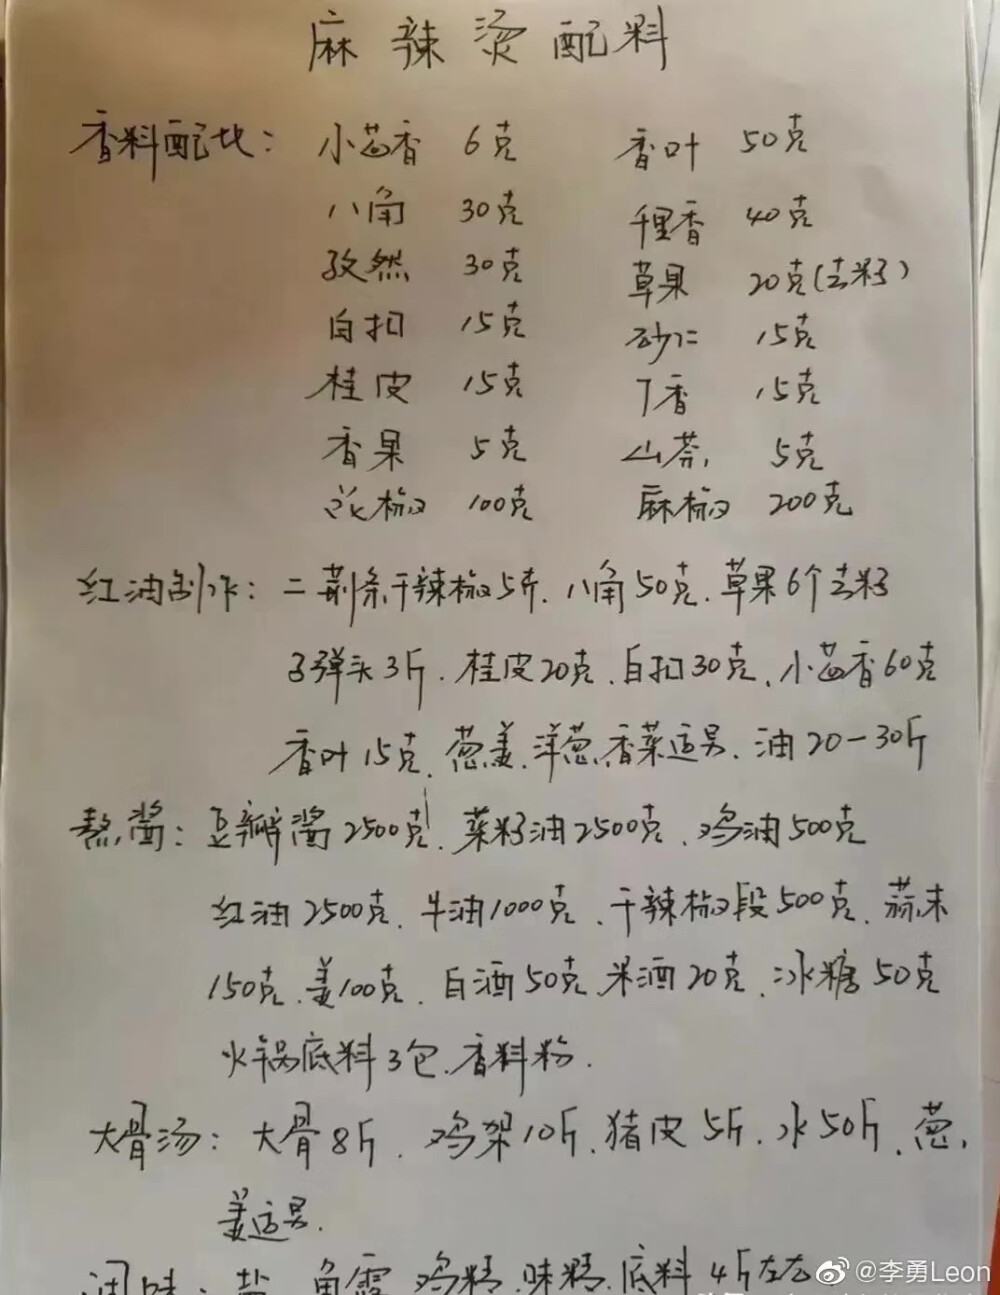 麻辣烫配料
香料配比：小茴香 6克 香叶 50克
八角 30克 千里香 40克
孜然 30克 草果 20克(去籽)
白扣 15克 砂仁 15克
桂皮 15克 丁香 15克
香果 5克 山奈 5克
花椒 100克 麻椒 200克
红油制作：二荆条干辣椒5斤、八角50克、草果6个去籽
子弹头3斤、桂皮20克、白扣30克、小茴香60克
香叶15克、葱姜、洋葱、香菜适另、油20-30斤
熬酱：豆瓣酱2500克、菜籽油2500克、鸡油500克
红油2500克、牛油1000克、干辣椒段500克、蒜末
150克、姜100克、白酒50克、米酒20克、冰糖50克
火锅底料3包、香料粉.
大骨汤：大骨8斤、鸡架10斤、猪皮5斤、水50斤、葱、
姜适另.
调味：盐 鸡精、味精、底料4斤左右
@李勇Leon